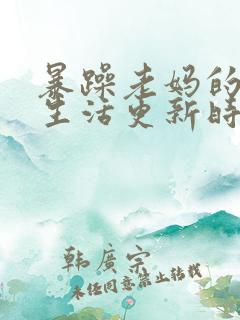 暴躁老妈的
生活更新时
韩广宗
未经同意禁止转载